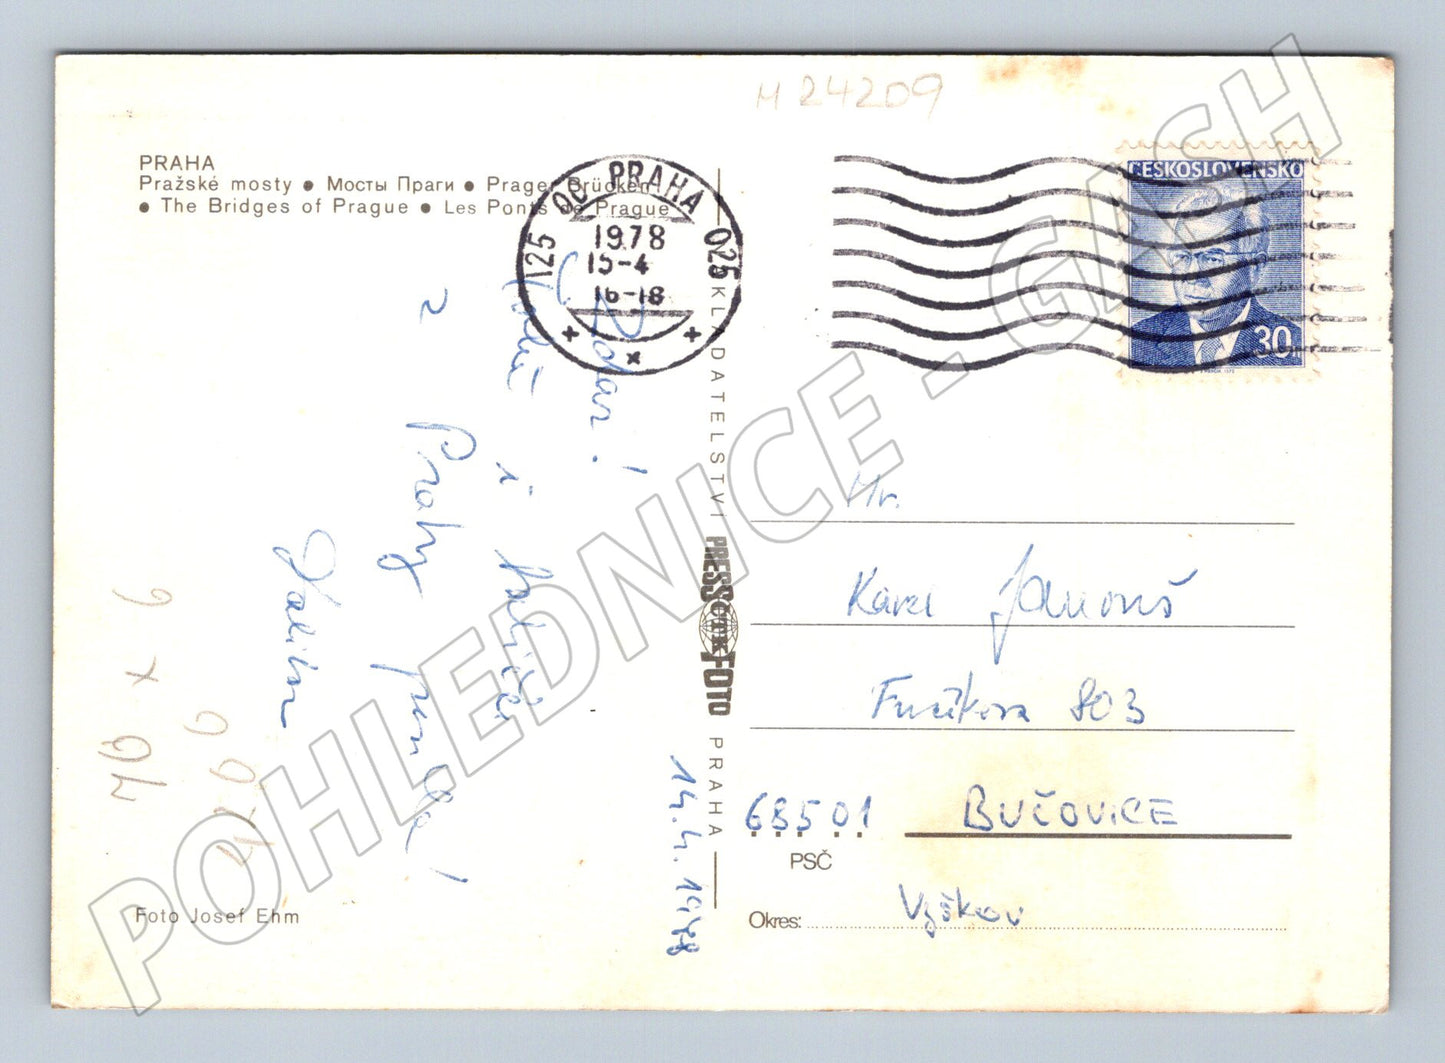 M 24209
PRAHA
Pražské mosty ● Мосты Праги ● Prager Brücken
● The Bridges of Prague ● Les Ponts de Prague
125 OC PRAHA 025
1978
15-4
16-18
ČESKOSLOVENSKO
30
Zdar!
i
z Prahy
Dalibor
14. 4. 1978
VYKLADATELSTVÍ PRESSFOTO PRAHA
ČTK
Mr.
Karel Janouš
Fučíkova 803
68501 BUČOVICE
PSČ
Okres: Vyškov
Foto Josef Ehm
9 x 9
POHLEDNICE - GASH